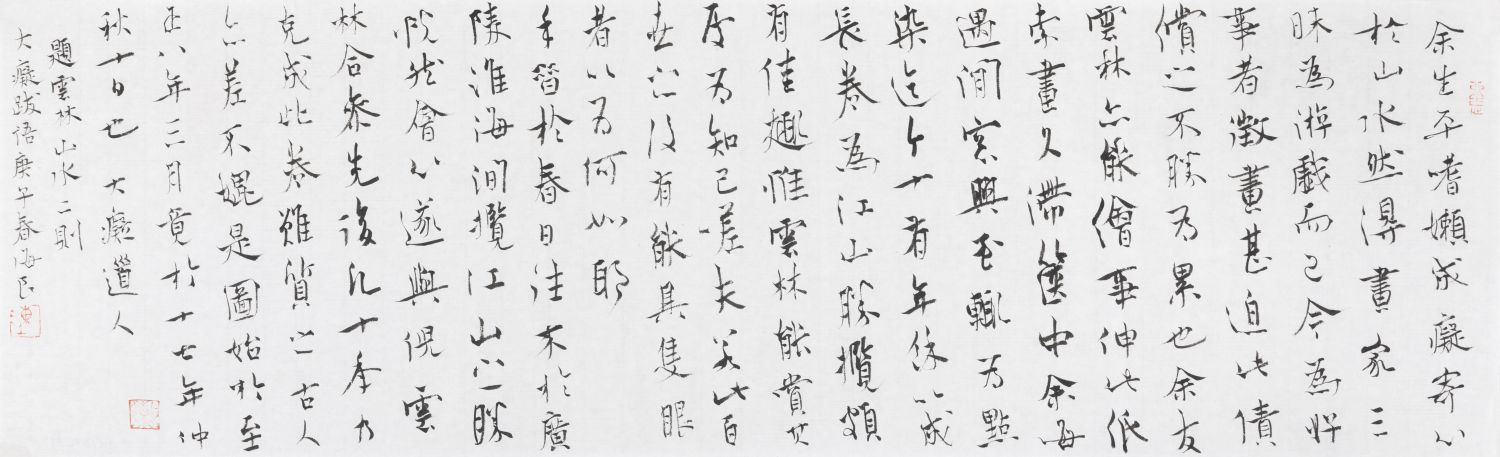 余生平嗜懶成癡寄心
於山水然得畫家三
昧為游戲而已今為好
事者徵畫甚迫此債
償之不勝為累也余友
雲林亦能繪事伸此紙
索畫久滯篋中余每
遇閒窓興至輒為點
染迄今十有年餘以成
長卷為江山勝攬頗
有佳趣惟雲林能賞其
處為知己嗟夫若此百
世之後有能具隻眼
者以為何如耶
於春日往來於廣
陵淮海間攬江山之勝
恍然會心遂與倪雲
林合參先後凡十年乃
克成此卷雖質之古人
亦差不媿是圖始於至
正八年三月竟於十七年仲
秋十日也 大癡道人
題雲林山水二則
大癡跋語庚午春海民